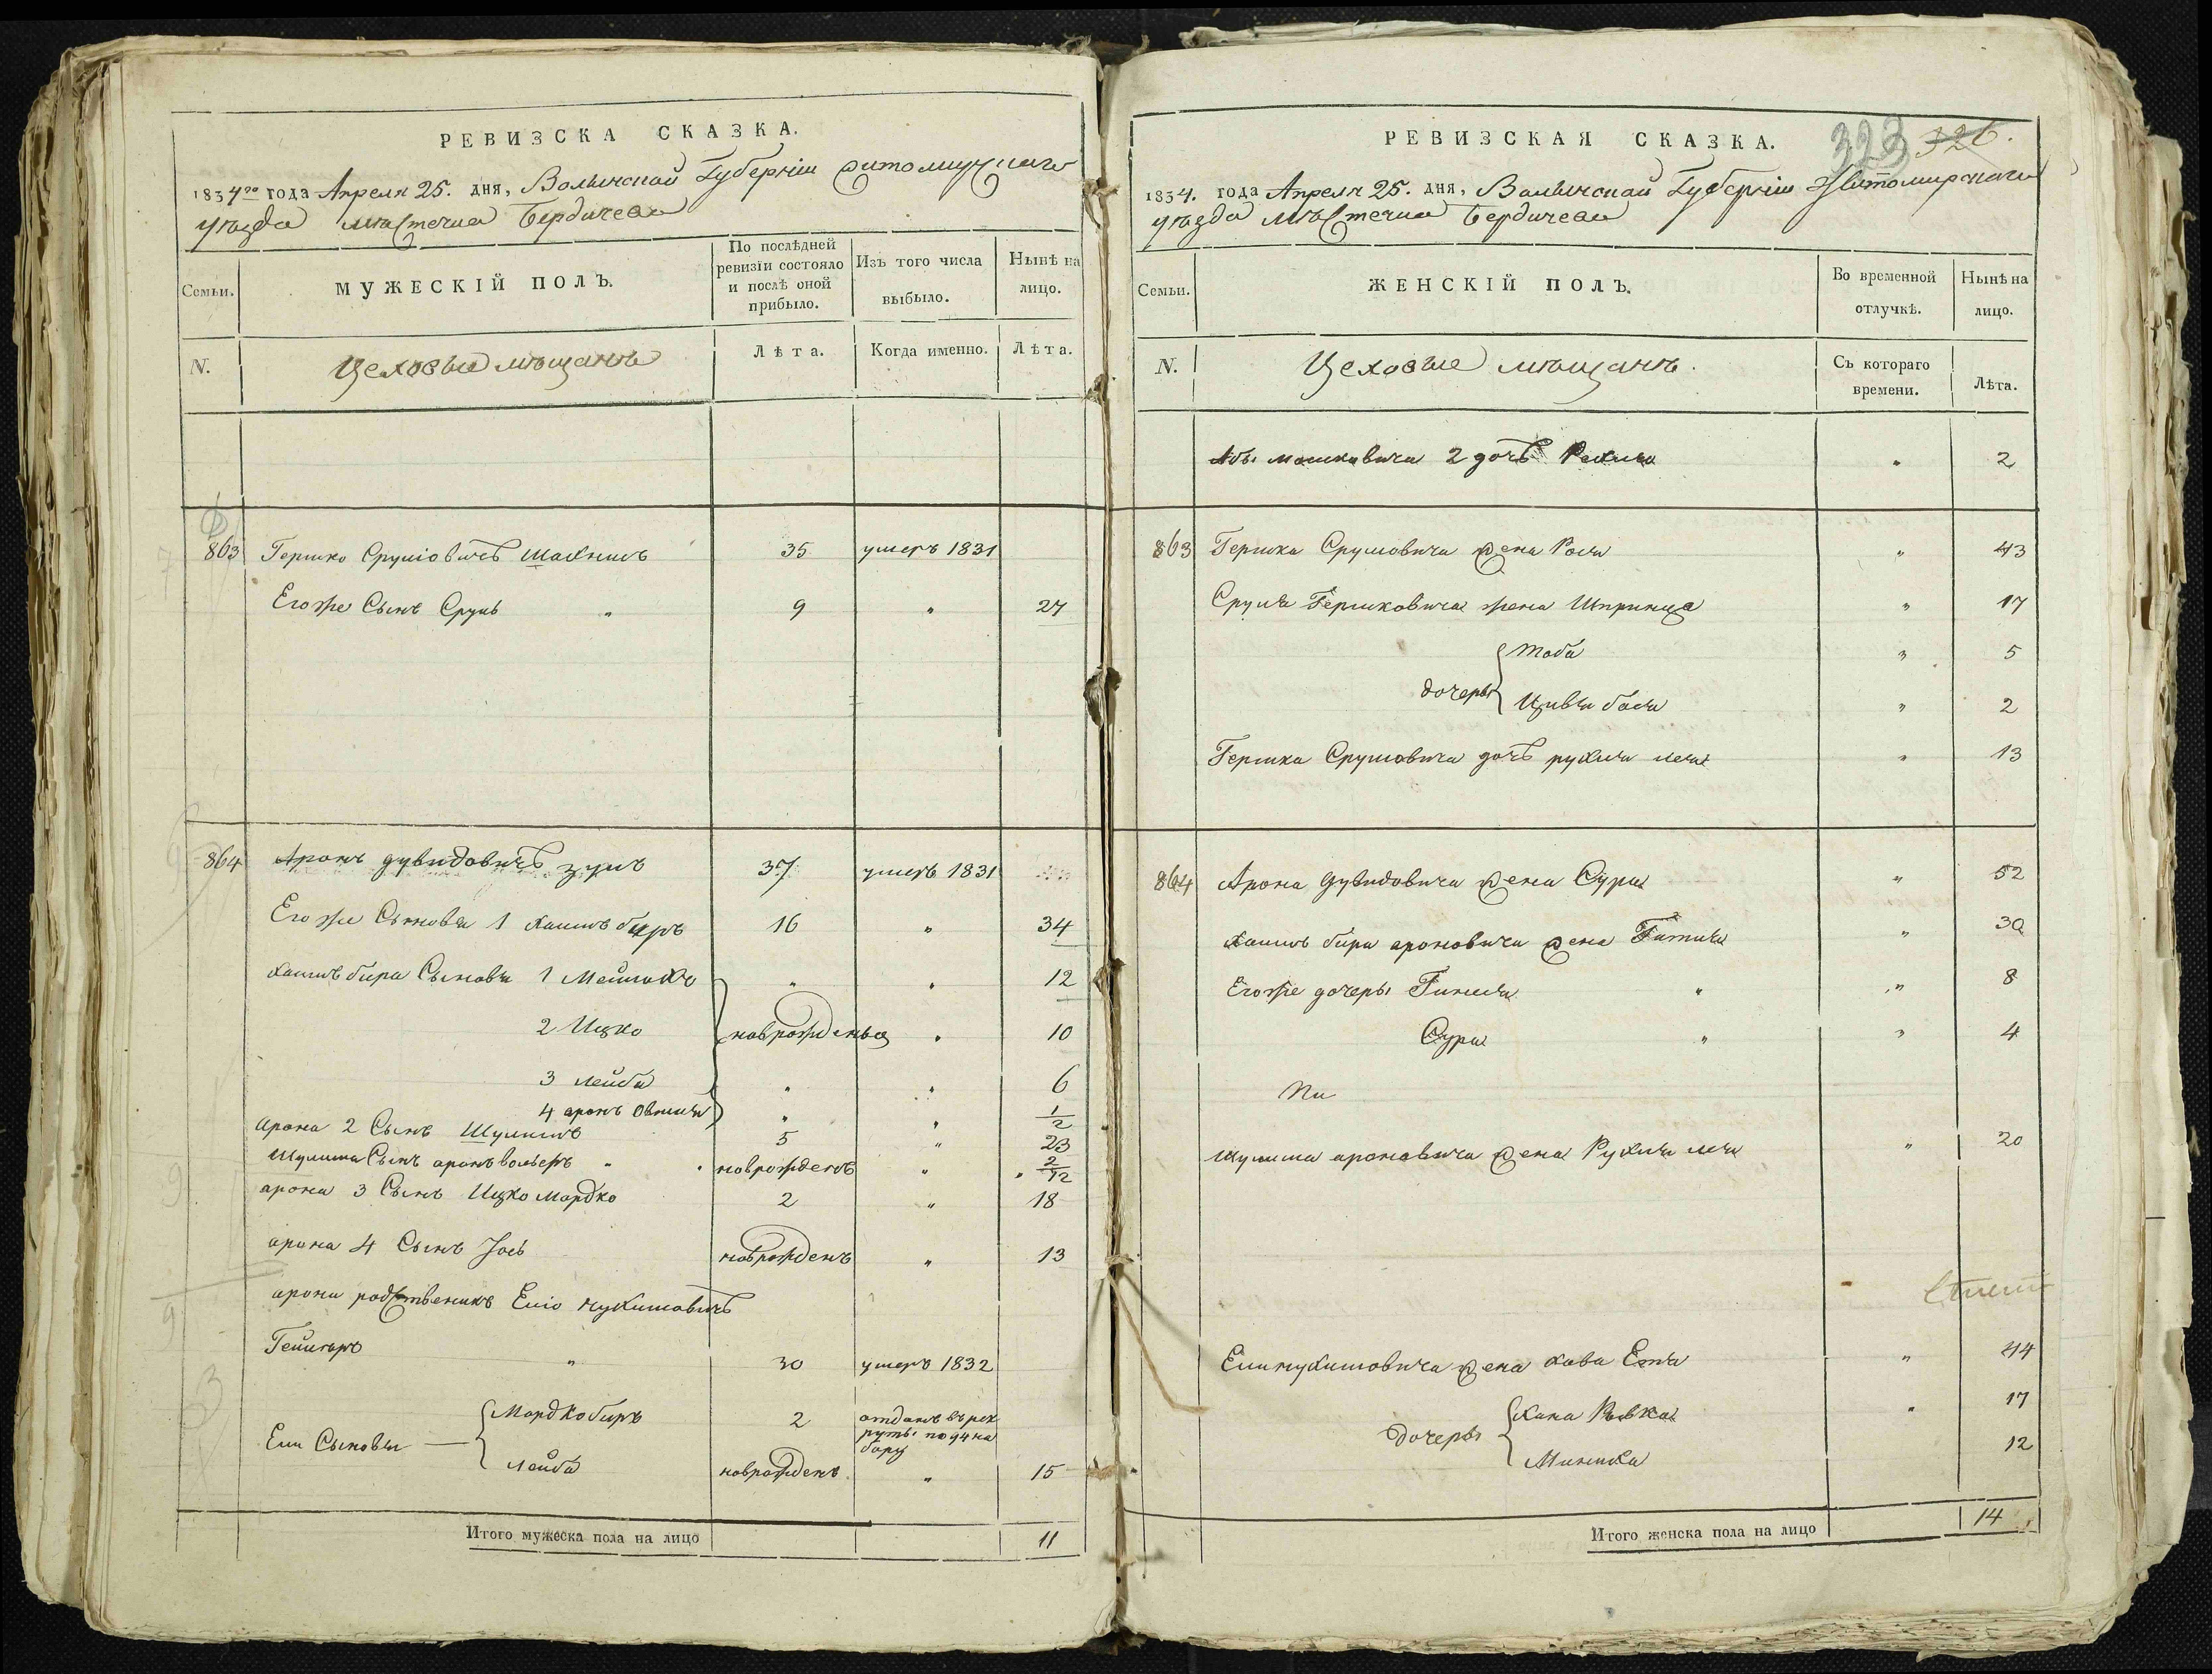 РЕВИЗСКА СКАЗКА.
1834го года Апреля 25. дня, Волынской Губерніи Житомирскаго
уѣзда мѣстечка Бердичева
Семьи.
МУЖЕСКІЙ ПОЛЪ.
По послѣдней ревизіи состояло и послѣ оной прибыло.
Изъ того числа выбыло.
Нынѣ на лицо.
N.
Цеховые мѣщане
Лѣта.
Когда именно.
Лѣта.
863 Гершко Сруліовичъ 35 умеръ 1831
Его же Сынъ Сруль " 9 " 24
864 Аронъ дувидовичъ 37 умеръ 1831
Его же Сыновья 1 Хаимъ беръ 16 " 34
Хаимъ бера Сыновья 1 " " 12
2 Ицко новрожденыя " 10
3 лейба " " 6
4 аронъ " " 1/2
арона 2 Сынъ Шулимъ 5 " 23
Шулима Сынъ аронъ " новрожденъ " 2/12
арона 3 Сынъ Ицко Мордко 2 " 18
арона 4 Сынъ Іось новрожденъ " 13
арона родственникъ Еліо нухимовичъ
" 30 умеръ 1832
Ели Сыновья
Мордко беръ 2 отданъ въ рек
руты по 94 на
бору
лейба новрожденъ " 15
Итого мужеска пола на лицо 11
РЕВИЗСКАЯ СКАЗКА.
323 326.
1834. года Апреля 25. дня, Волынской Губерніи Житомирскаго
уѣзда мѣстечка Бердичева
Семьи.
ЖЕНСКІЙ ПОЛЪ.
Во временной отлучкѣ.
Нынѣ на лицо.
N.
Цеховые мѣщане.
Съ котораго времени.
Лѣта.
мошковича 2 дочь Рехля " 2
863 Гершка Срулювича жена Рося " 43
Сруля Гершковича жена Шпринца " 17
Тоба " 5
дочеры
Цивья бася " 2
Гершка Срулювича дочь рухля лея " 13
864 Арона дувидовича жена Сура " 52
Хаимъ бера ароновича жена Гитля " 30
Его же дочеры " " 8
Сура " " 4
Шулима ароновича жена Рухля лея " 20
Ели нухимовича жена хава Етя " 44
Хана Ривка " 17
дочеры
12
Итого женска пола на лицо 14